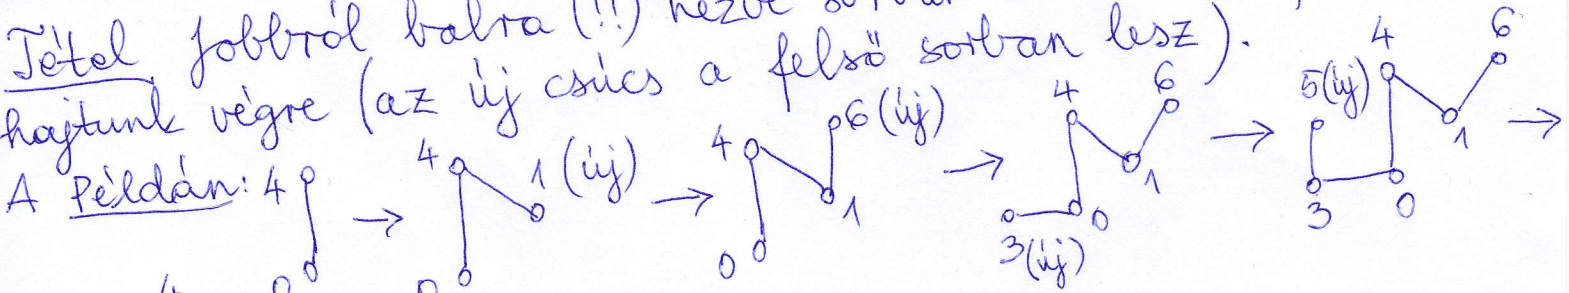 Tétel jobbról balra (!!) nézve
hajtunk végre (az új csúcs a felső sorban lesz).
A Példán: 4 0 → 4 1 (új) 0 → 4 6 (új) 0 1 → 4 6 3 (új) 0 1 → 5 (új) 4 6 3 0 1 →